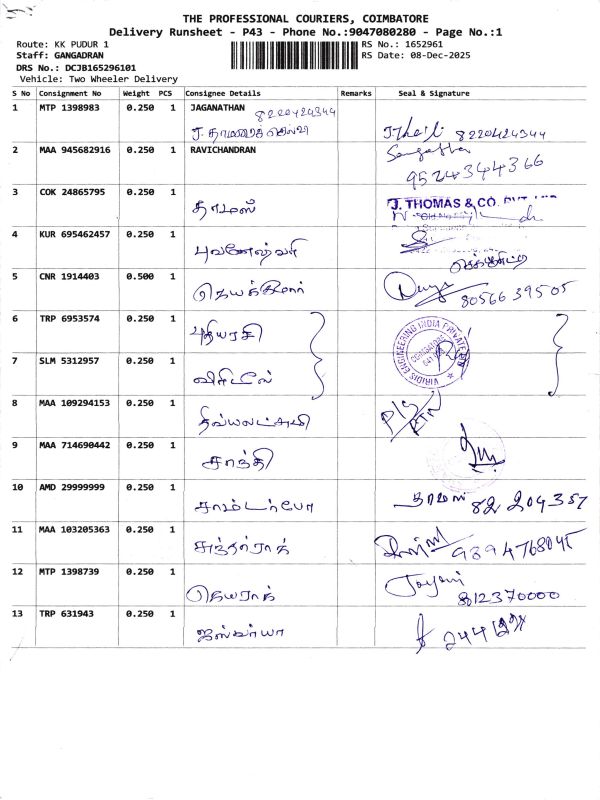 THE PROFESSIONAL COURIERS, COIMBATORE
Delivery Runsheet - P43 - Phone No.:9047080280 - Page No.:1
Route: KK PUDUR 1 RS No.: 1652961
Staff: GANGADRAN RS Date: 08-Dec-2025
DRS No.: DCJB165296101
Vehicle: Two Wheeler Delivery
S No Consignment No Weight PCS Consignee Details Remarks Seal & Signature
1 MTP 1398983 0.250 1 JAGANATHAN 8220424344
J. தாமரைச் செல்வி 8220424344
2 MAA 945682916 0.250 1 RAVICHANDRAN
9524344366
3 COK 24865795 0.250 1 தாமஸ் J. THOMAS & CO.
4 KUR 695462457 0.250 1 புவனேஷ்வரி
5 CNR 1914403 0.500 1 ஜெயக்குமார் 8056639505
6 TRP 6953574 0.250 1 VIRIDIS ENGINEERING INDIA PRIVATE
7 SLM 5312957 0.250 1
8 MAA 109294153 0.250 1 திவ்யலட்சுமி
9 MAA 714690442 0.250 1 சாந்தி
10 AMD 29999999 0.250 1 82 204357
11 MAA 103205363 0.250 1 சுந்தர்ராஜ்
12 MTP 1398739 0.250 1 ஜெயராஜ்
8012370000
13 TRP 631943 0.250 1 ஐஸ்வர்யா